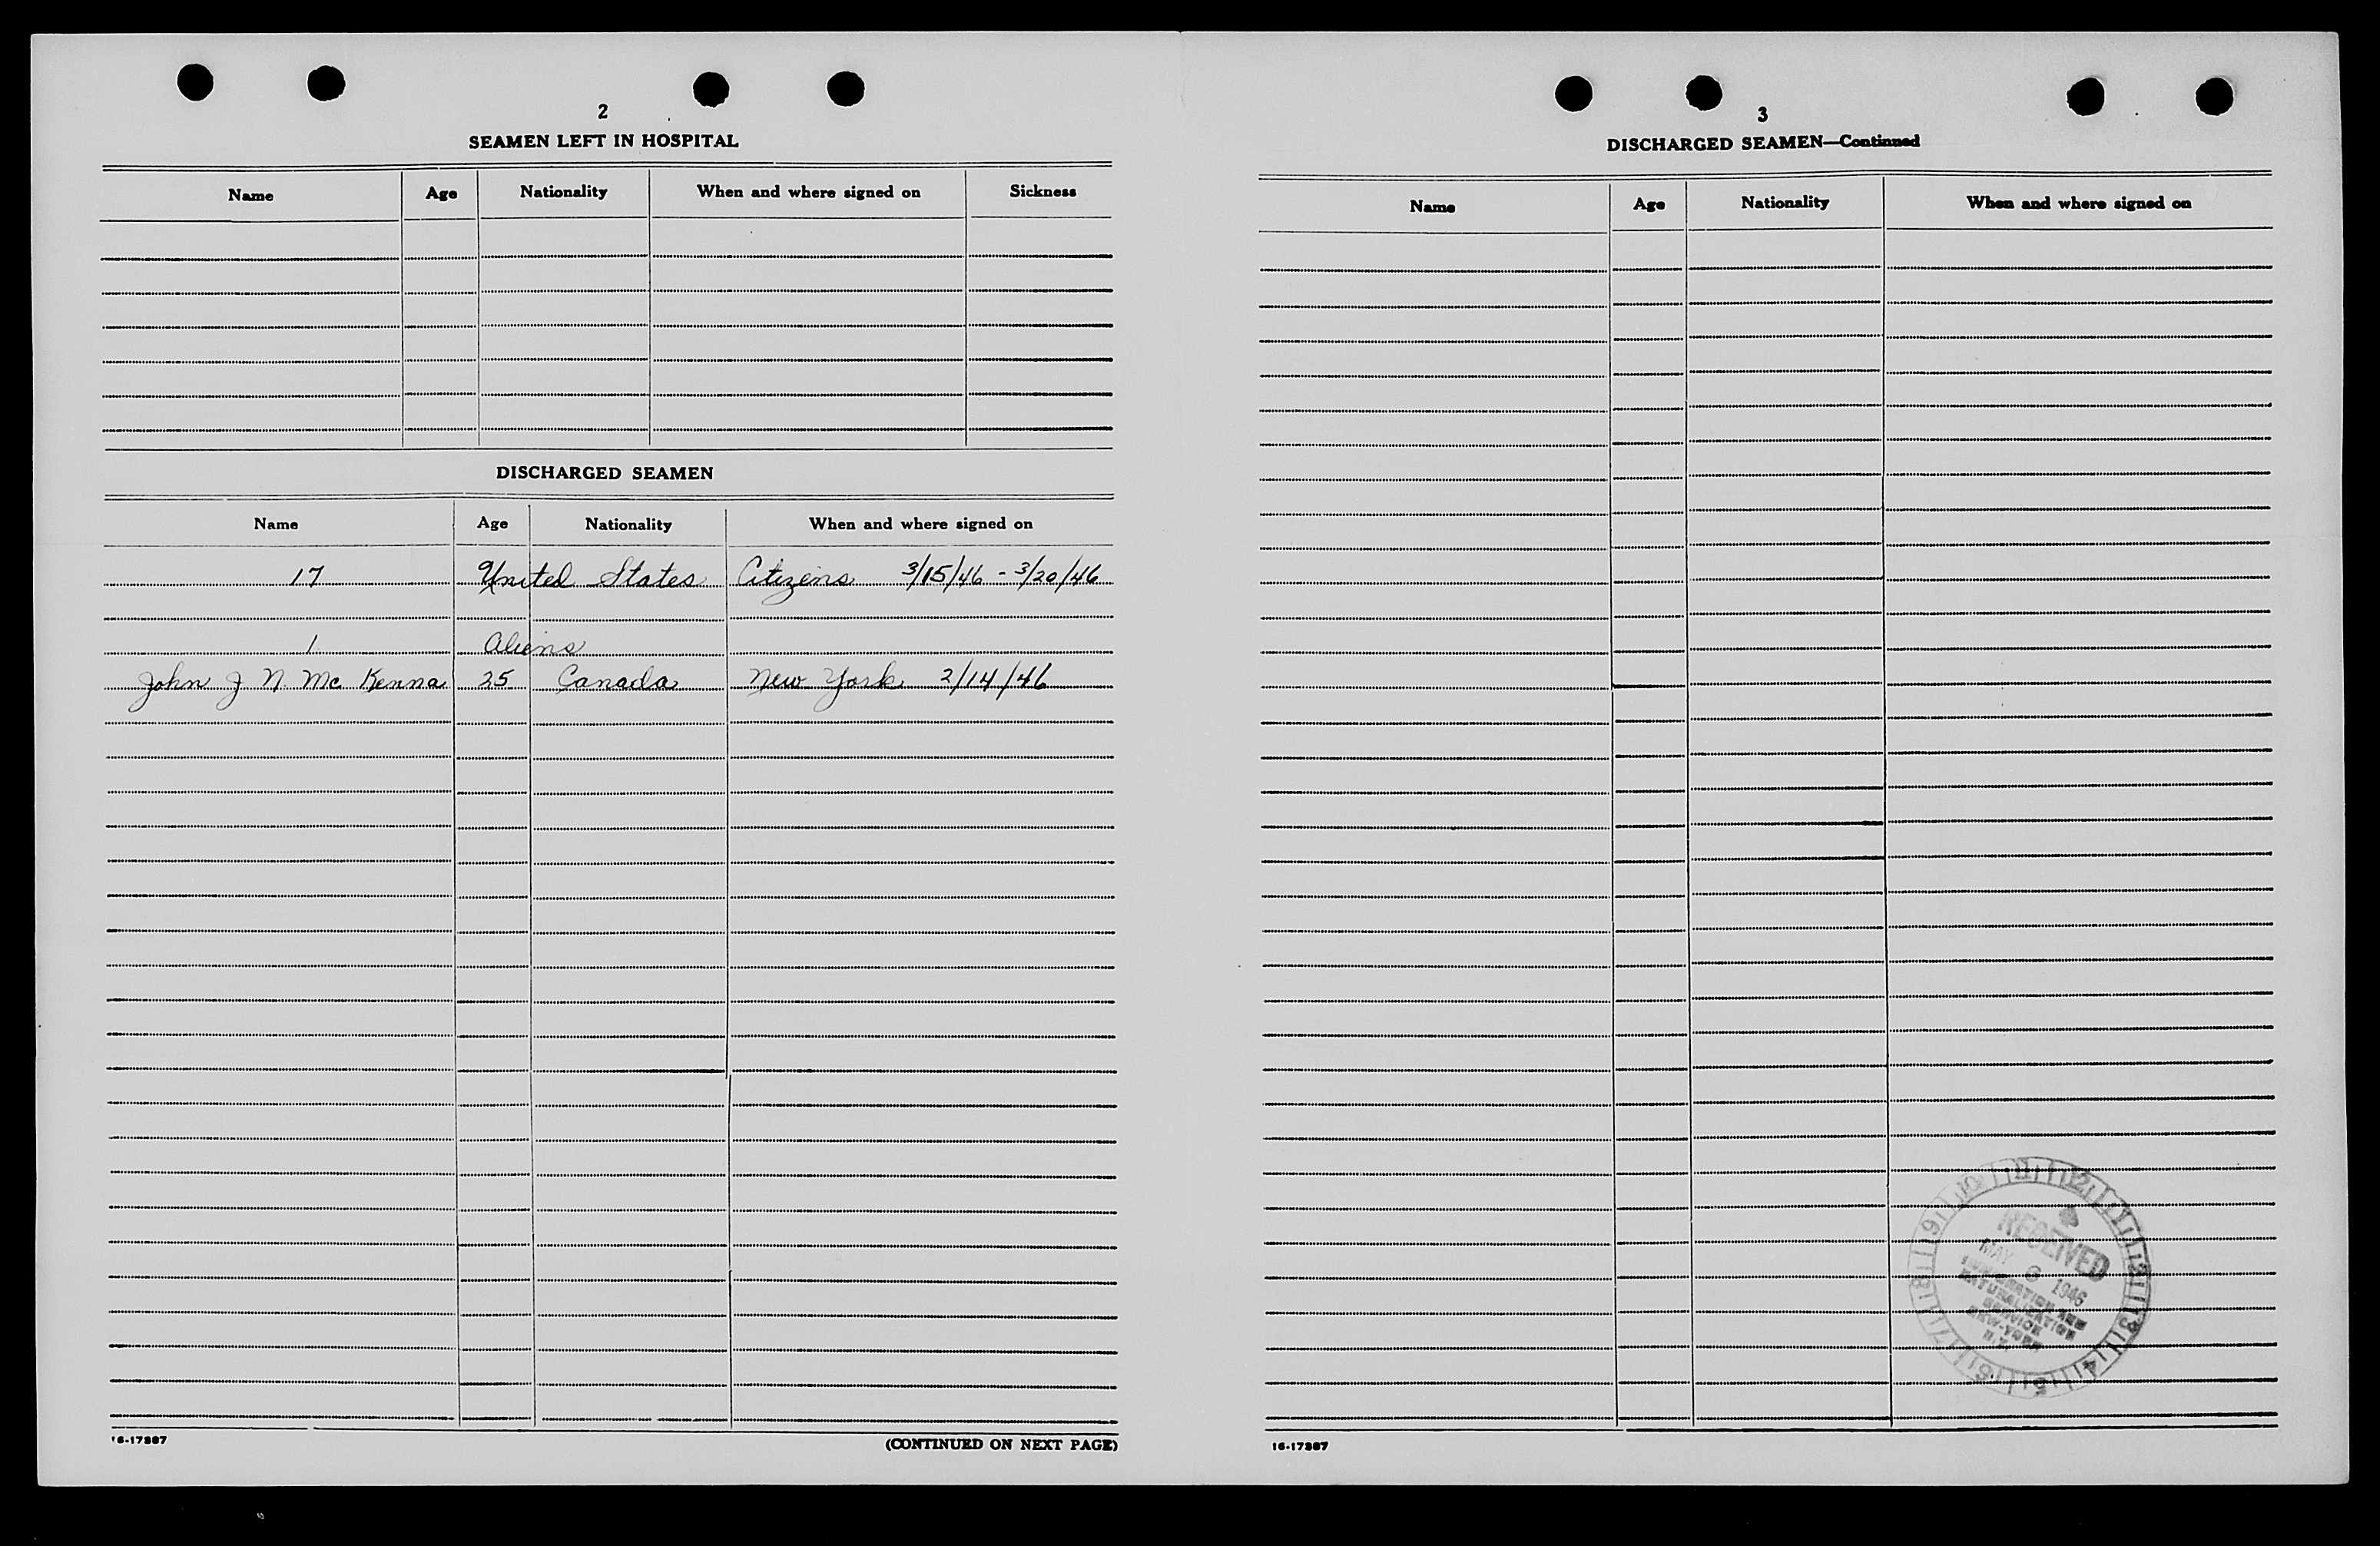 2
SEAMEN LEFT IN HOSPITAL
Name Age Nationality When and where signed on Sickness
DISCHARGED SEAMEN
Name Age Nationality When and where signed on
17 United States Citizens 3/15/46 - 3/20/46
1 Aliens
John J N. McKenna 25 Canada New York 2/14/46
16-17887
(CONTINUED ON NEXT PAGE)
3
DISCHARGED SEAMEN—Continued
Name Age Nationality When and where signed on
RECEIVED
MAY 6 1946
IMMIGRATION AND
NATURALIZATION
SERVICE
NEW-YORK
N.Y.
16-17887